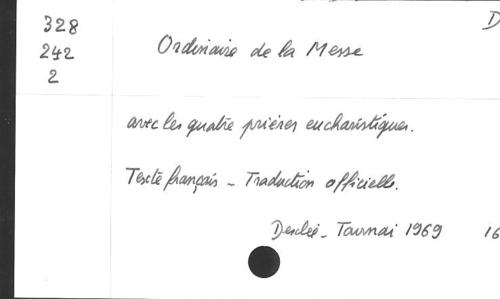 328
242
2
D
Ordinaire de la Messe
avec les quatre prières eucharistiques.
Texte français - Traduction officielle.
Desclée - Tournai 1969 16